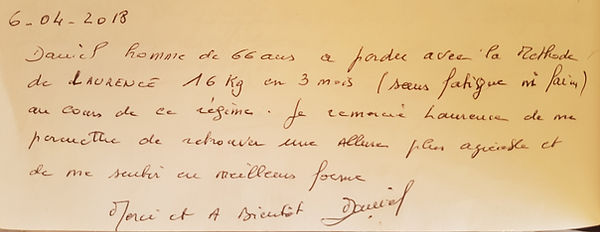 6-04-2018
Daniel homme de 66 ans a perdu avec la Méthode
de LAURENCE 16 Kg en 3 mois (sans fatigue ni faim)
au cours de ce régime. Je remercie Laurence de me
permettre de retrouver une Allure plus agréable et
de me sentir en meilleure forme
Merci et A Bientôt Daniel